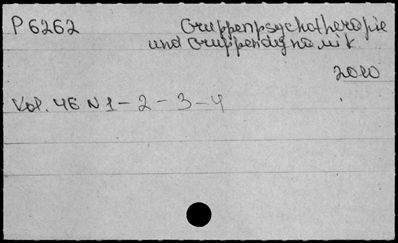 P6262 Gruppenpsychotherapie
und Gruppendynamik
2010
Vol. 46 N 1 - 2 - 3 - 4